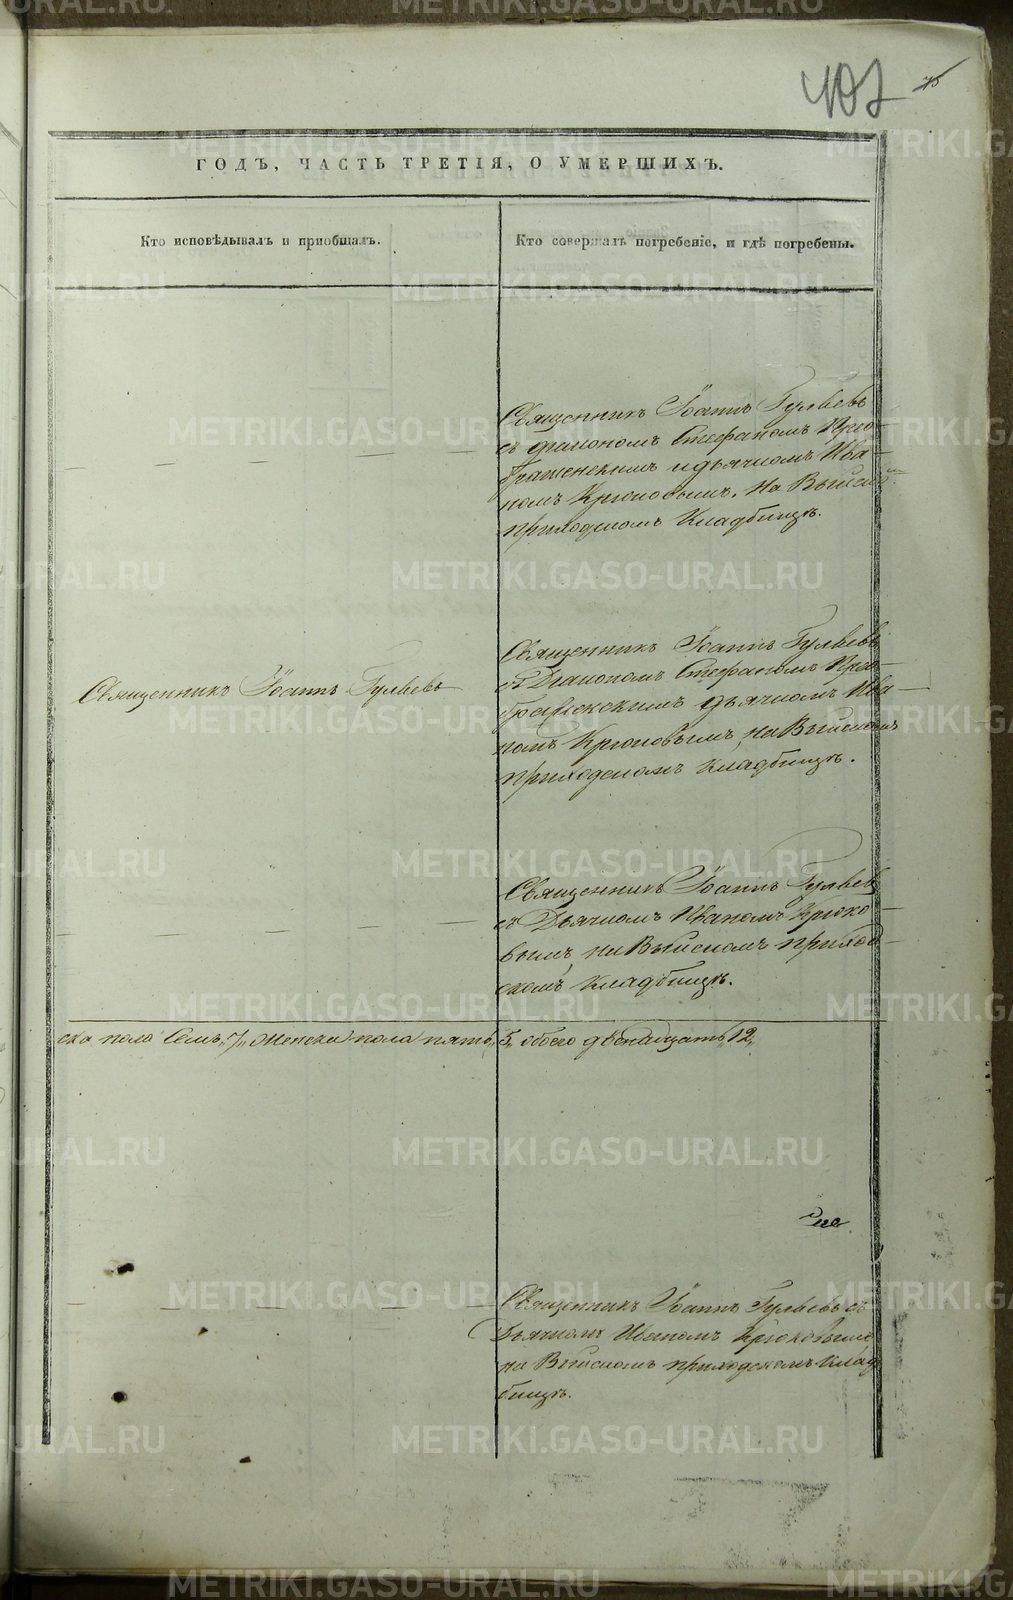 407 75
ГОДЪ, ЧАСТЬ ТРЕТІЯ, О УМЕРШИХЪ.
Кто исповѣдывалъ и приобщалъ.
Кто совершалъ погребеніе, и гдѣ погребены.
Священникъ Іоаннъ Гуляевъ
съ діакономъ Стефаномъ Прео-
браженскимъ и дьячкомъ Ива-
номъ Крюковымъ, на Выйскомъ
приходскомъ кладбищѣ.
Священникъ Іоаннъ Гуляевъ
Священникъ Іоаннъ Гуляевъ
съ Діакономъ Стефаномъ Прео-
браженскимъ дьячкомъ Ива-
номъ Крюковымъ, на Выйскомъ
приходскомъ кладбищѣ.
Священникъ Іоаннъ Гуляевъ
съ Дьячкомъ Иваномъ Крюко-
вымъ, на Выйскомъ приход-
скомъ кладбищѣ.
ска пола семь, 7, Женска пола пять, 5, обоего двенадцать 12,
Священникъ Іоаннъ Гуляевъ съ
Дьячкомъ Иваномъ Крюковымъ
на Выйскомъ приходскомъ клад
бищѣ.
METRIKI.GASO-URAL.RU